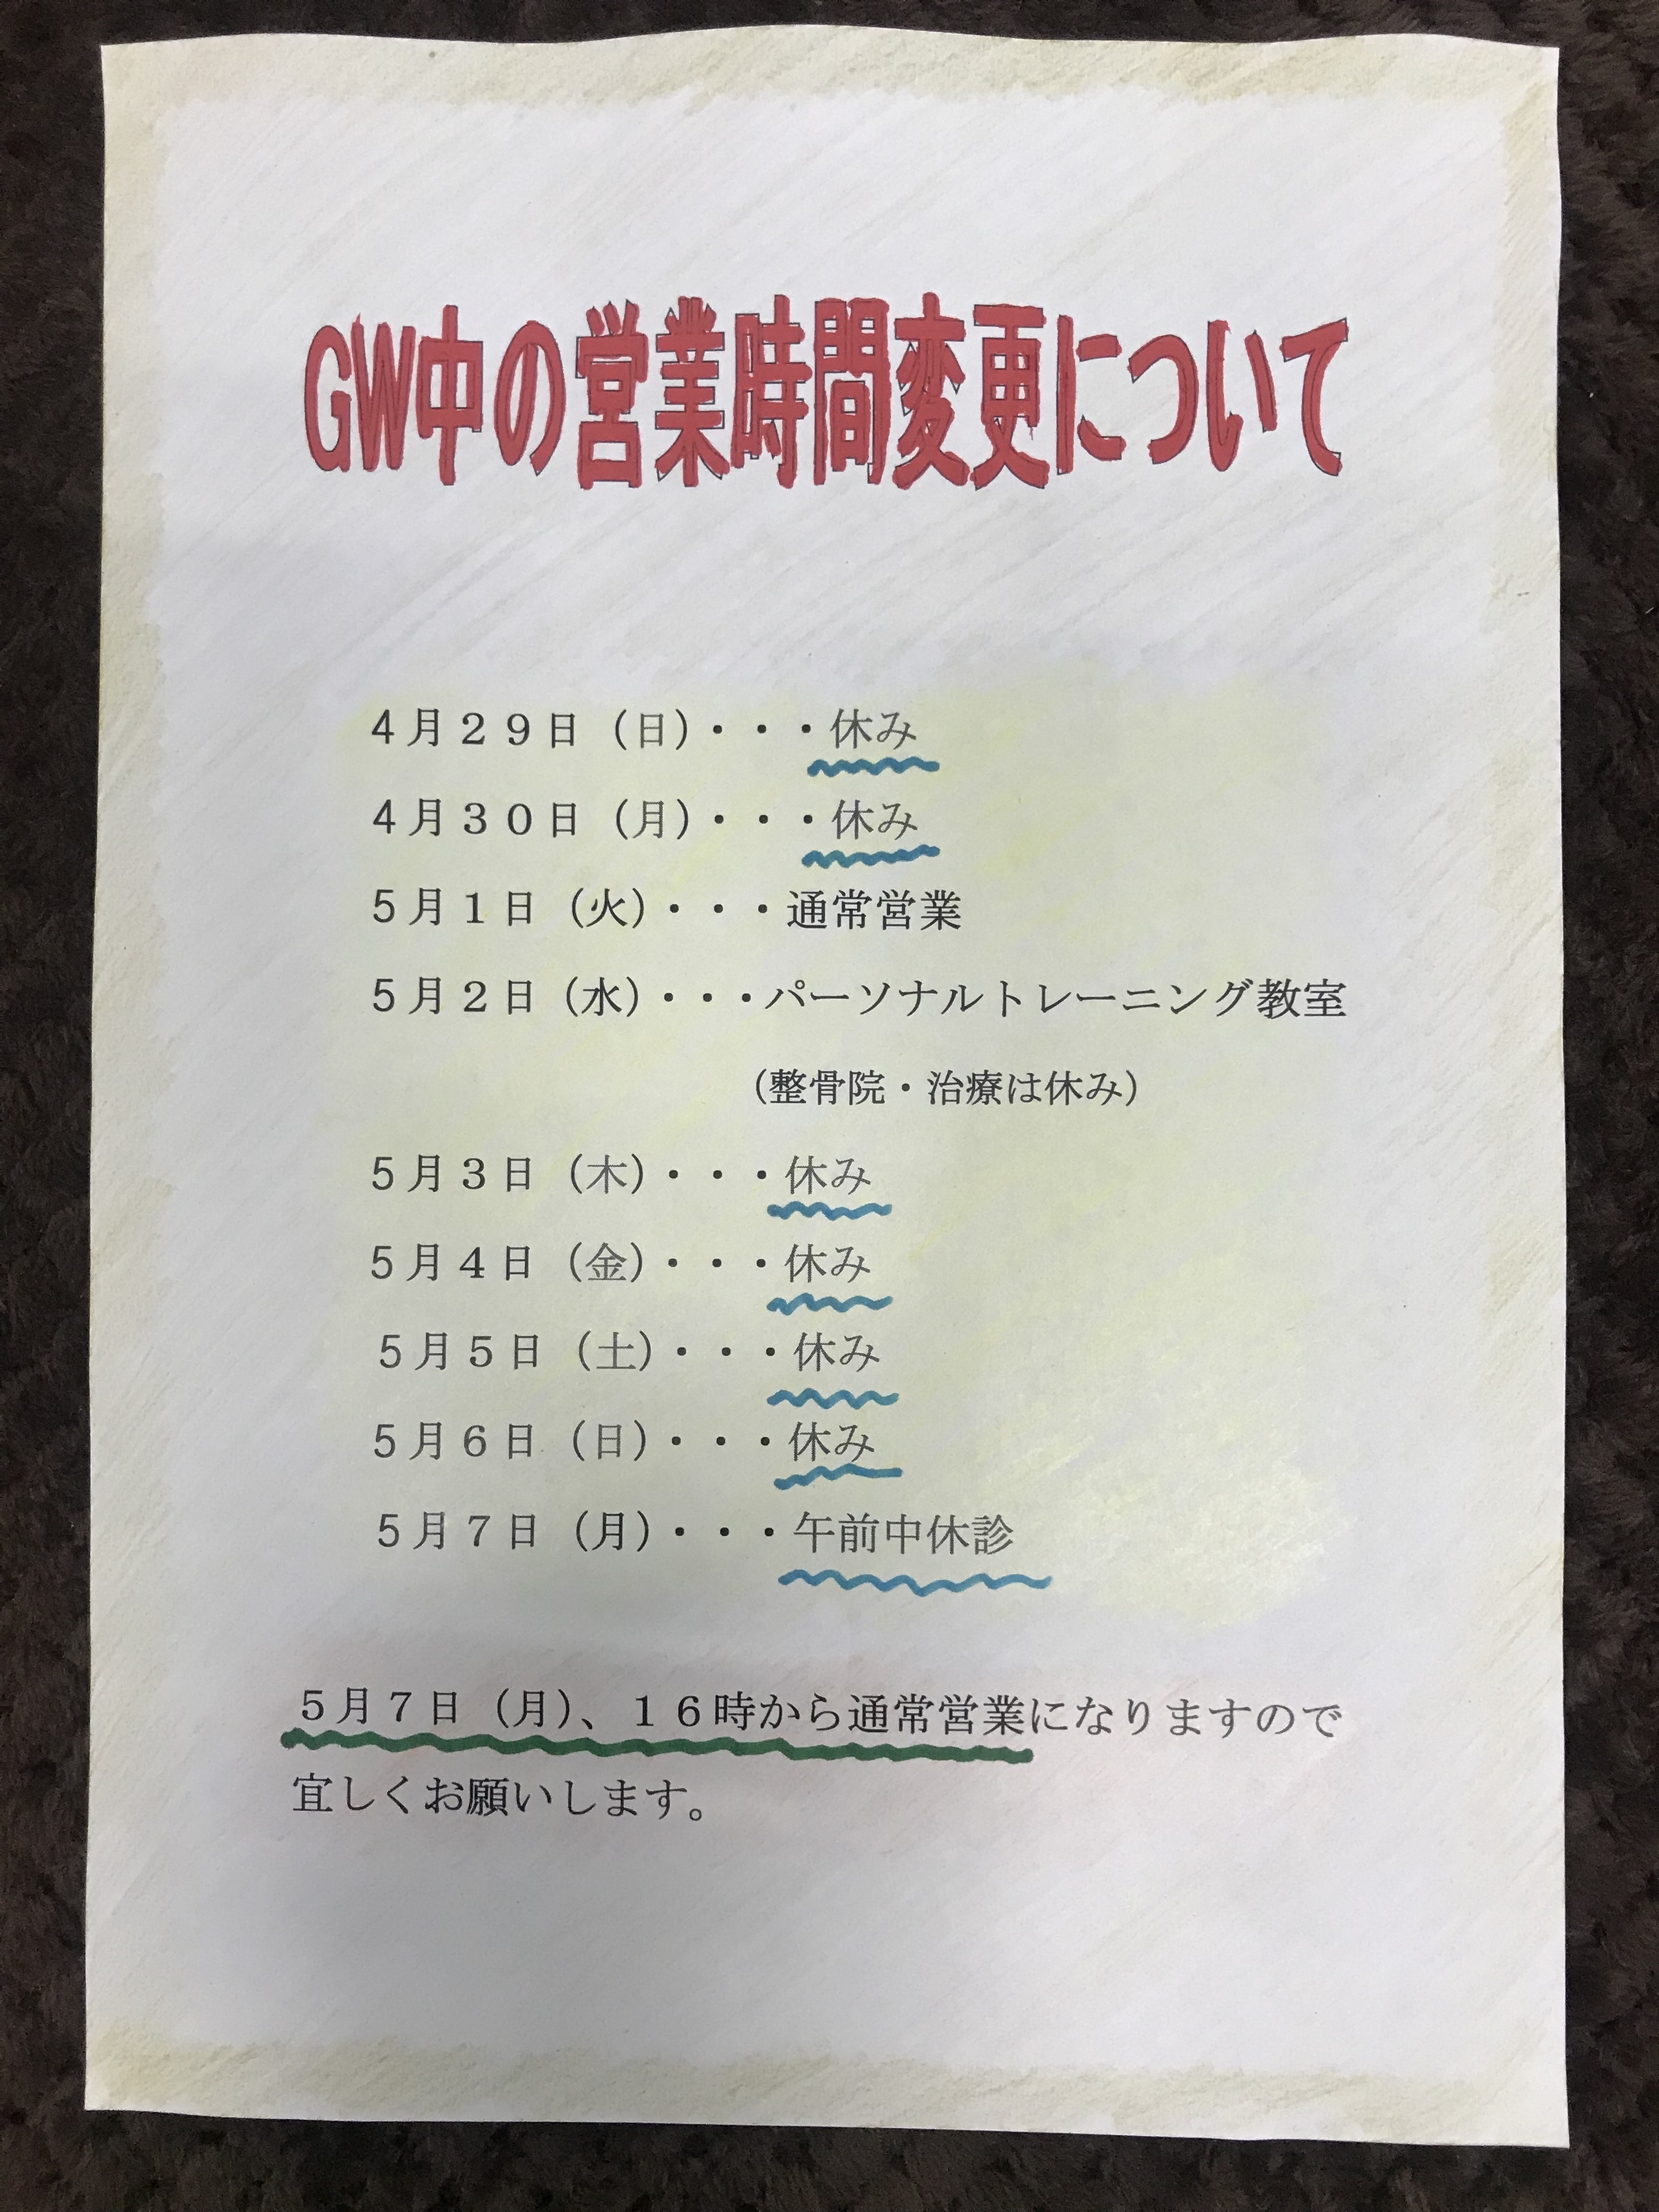 GW中の営業時間変更について
４月２９日（日）・・・休み
４月３０日（月）・・・休み
５月１日（火）・・・通常営業
５月２日（水）・・・パーソナルトレーニング教室
（整骨院・治療は休み）
５月３日（木）・・・休み
５月４日（金）・・・休み
５月５日（土）・・・休み
５月６日（日）・・・休み
５月７日（月）・・・午前中休診
５月７日（月）、１６時から通常営業になりますので
宜しくお願いします。